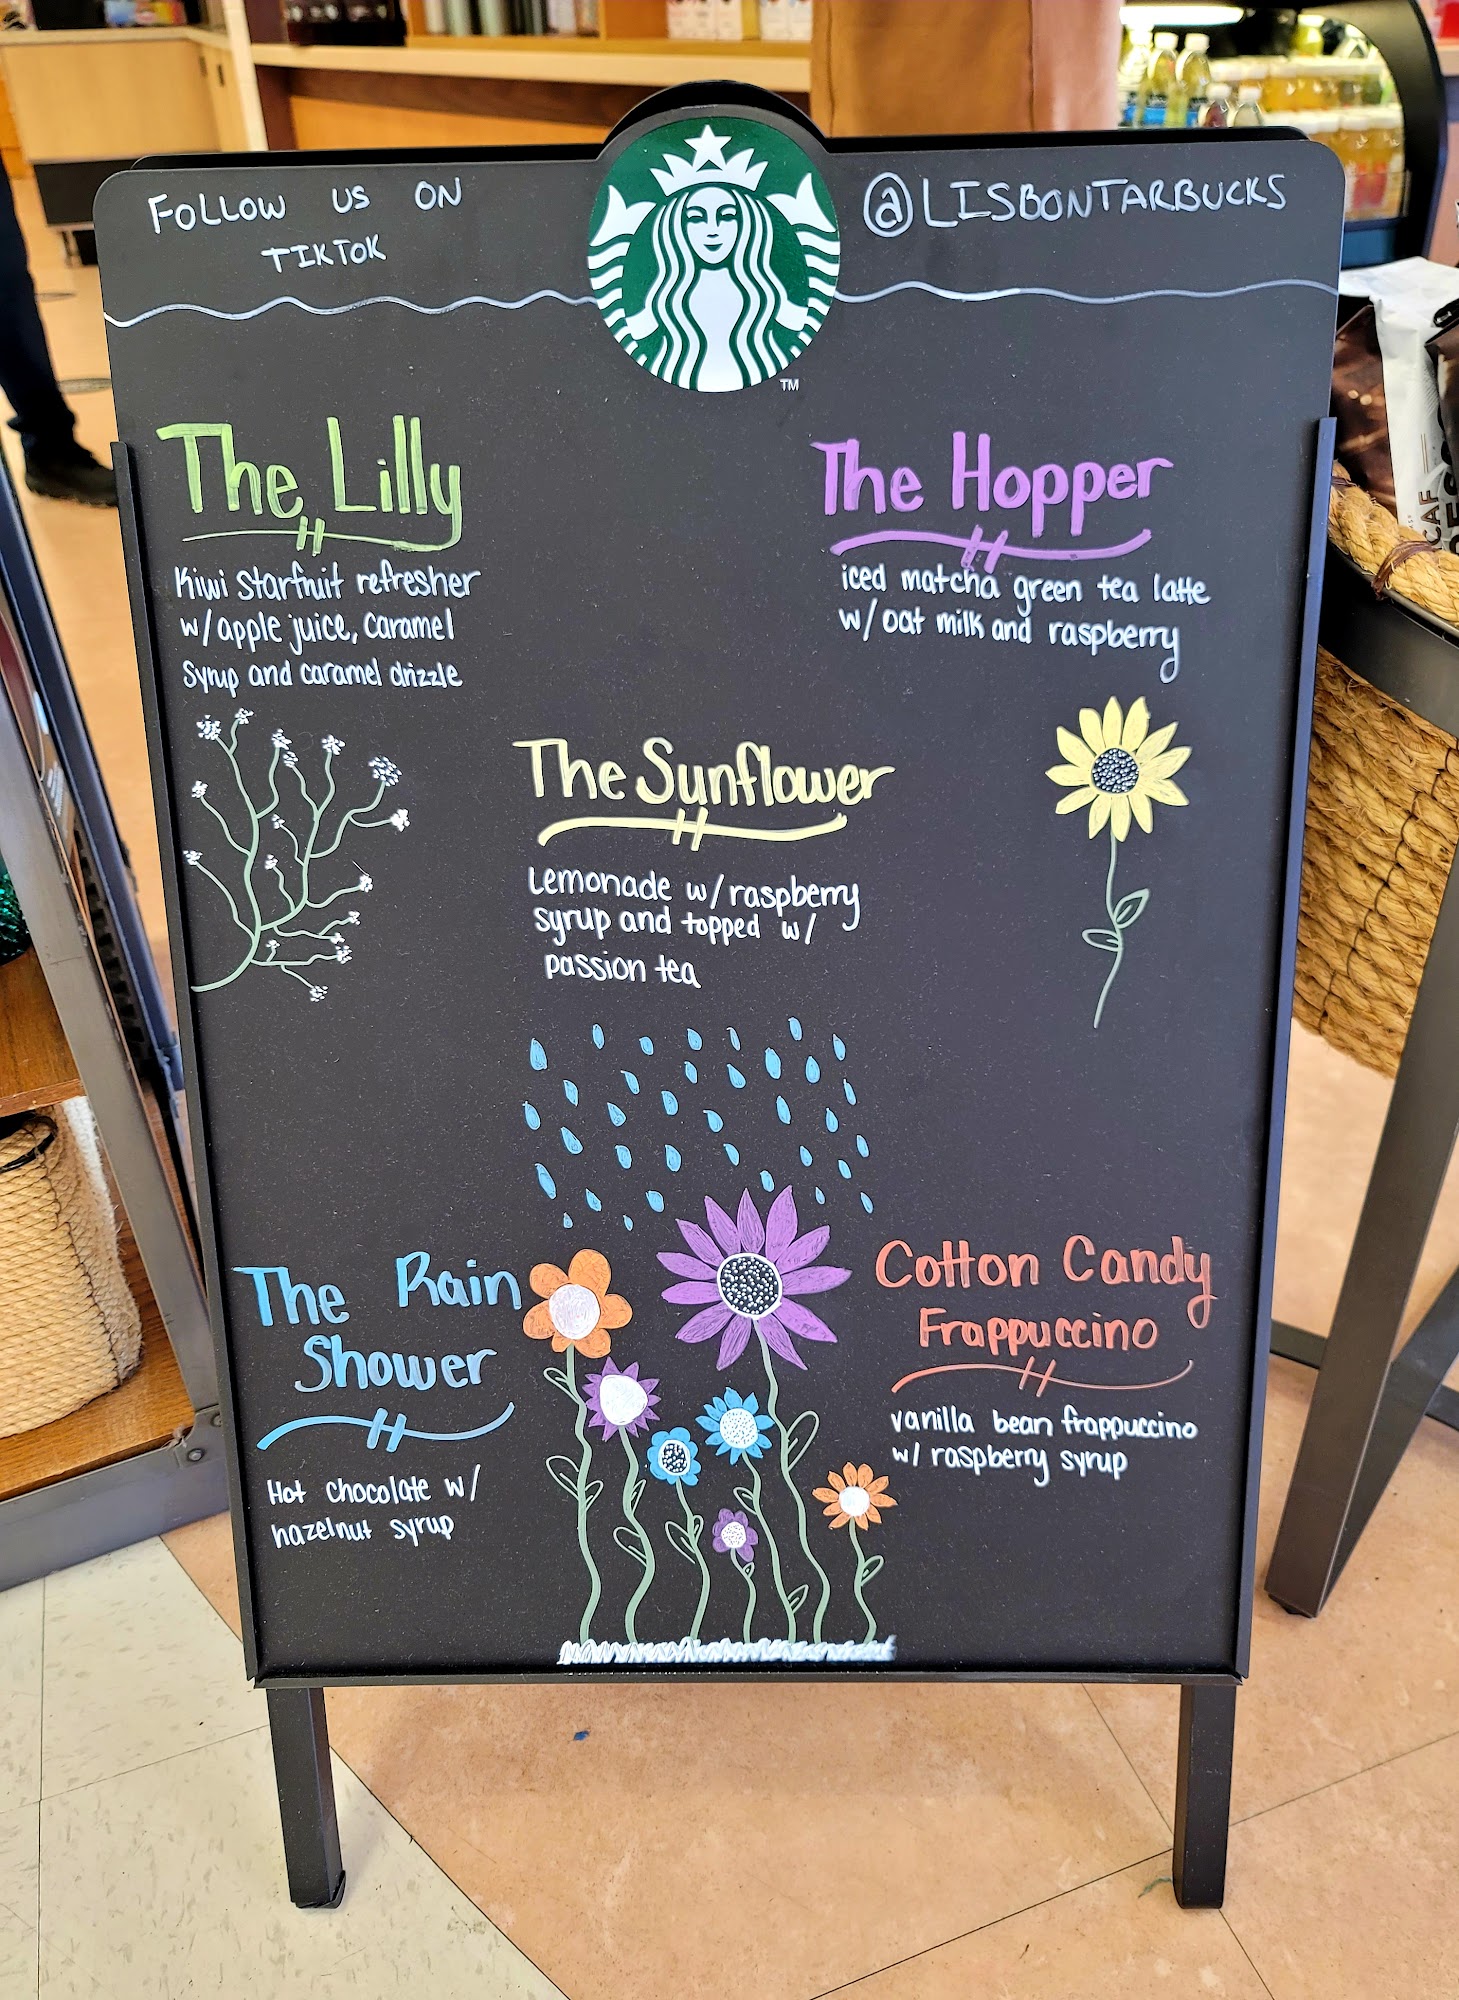 FOLLOW US ON
TIKTOK
@LISBONTARBUCKS
TM
The Lilly
Kiwi Starfruit refresher
w/apple juice, caramel
Syrup and caramel drizzle
The Hopper
iced matcha green tea latte
w/oat milk and raspberry
The Sunflower
Lemonade w/raspberry
syrup and topped w/
passion tea
The Rain
Shower
Hot chocolate w/
hazelnut syrup
Cotton Candy
Frappuccino
vanilla bean frappuccino
w/ raspberry syrup